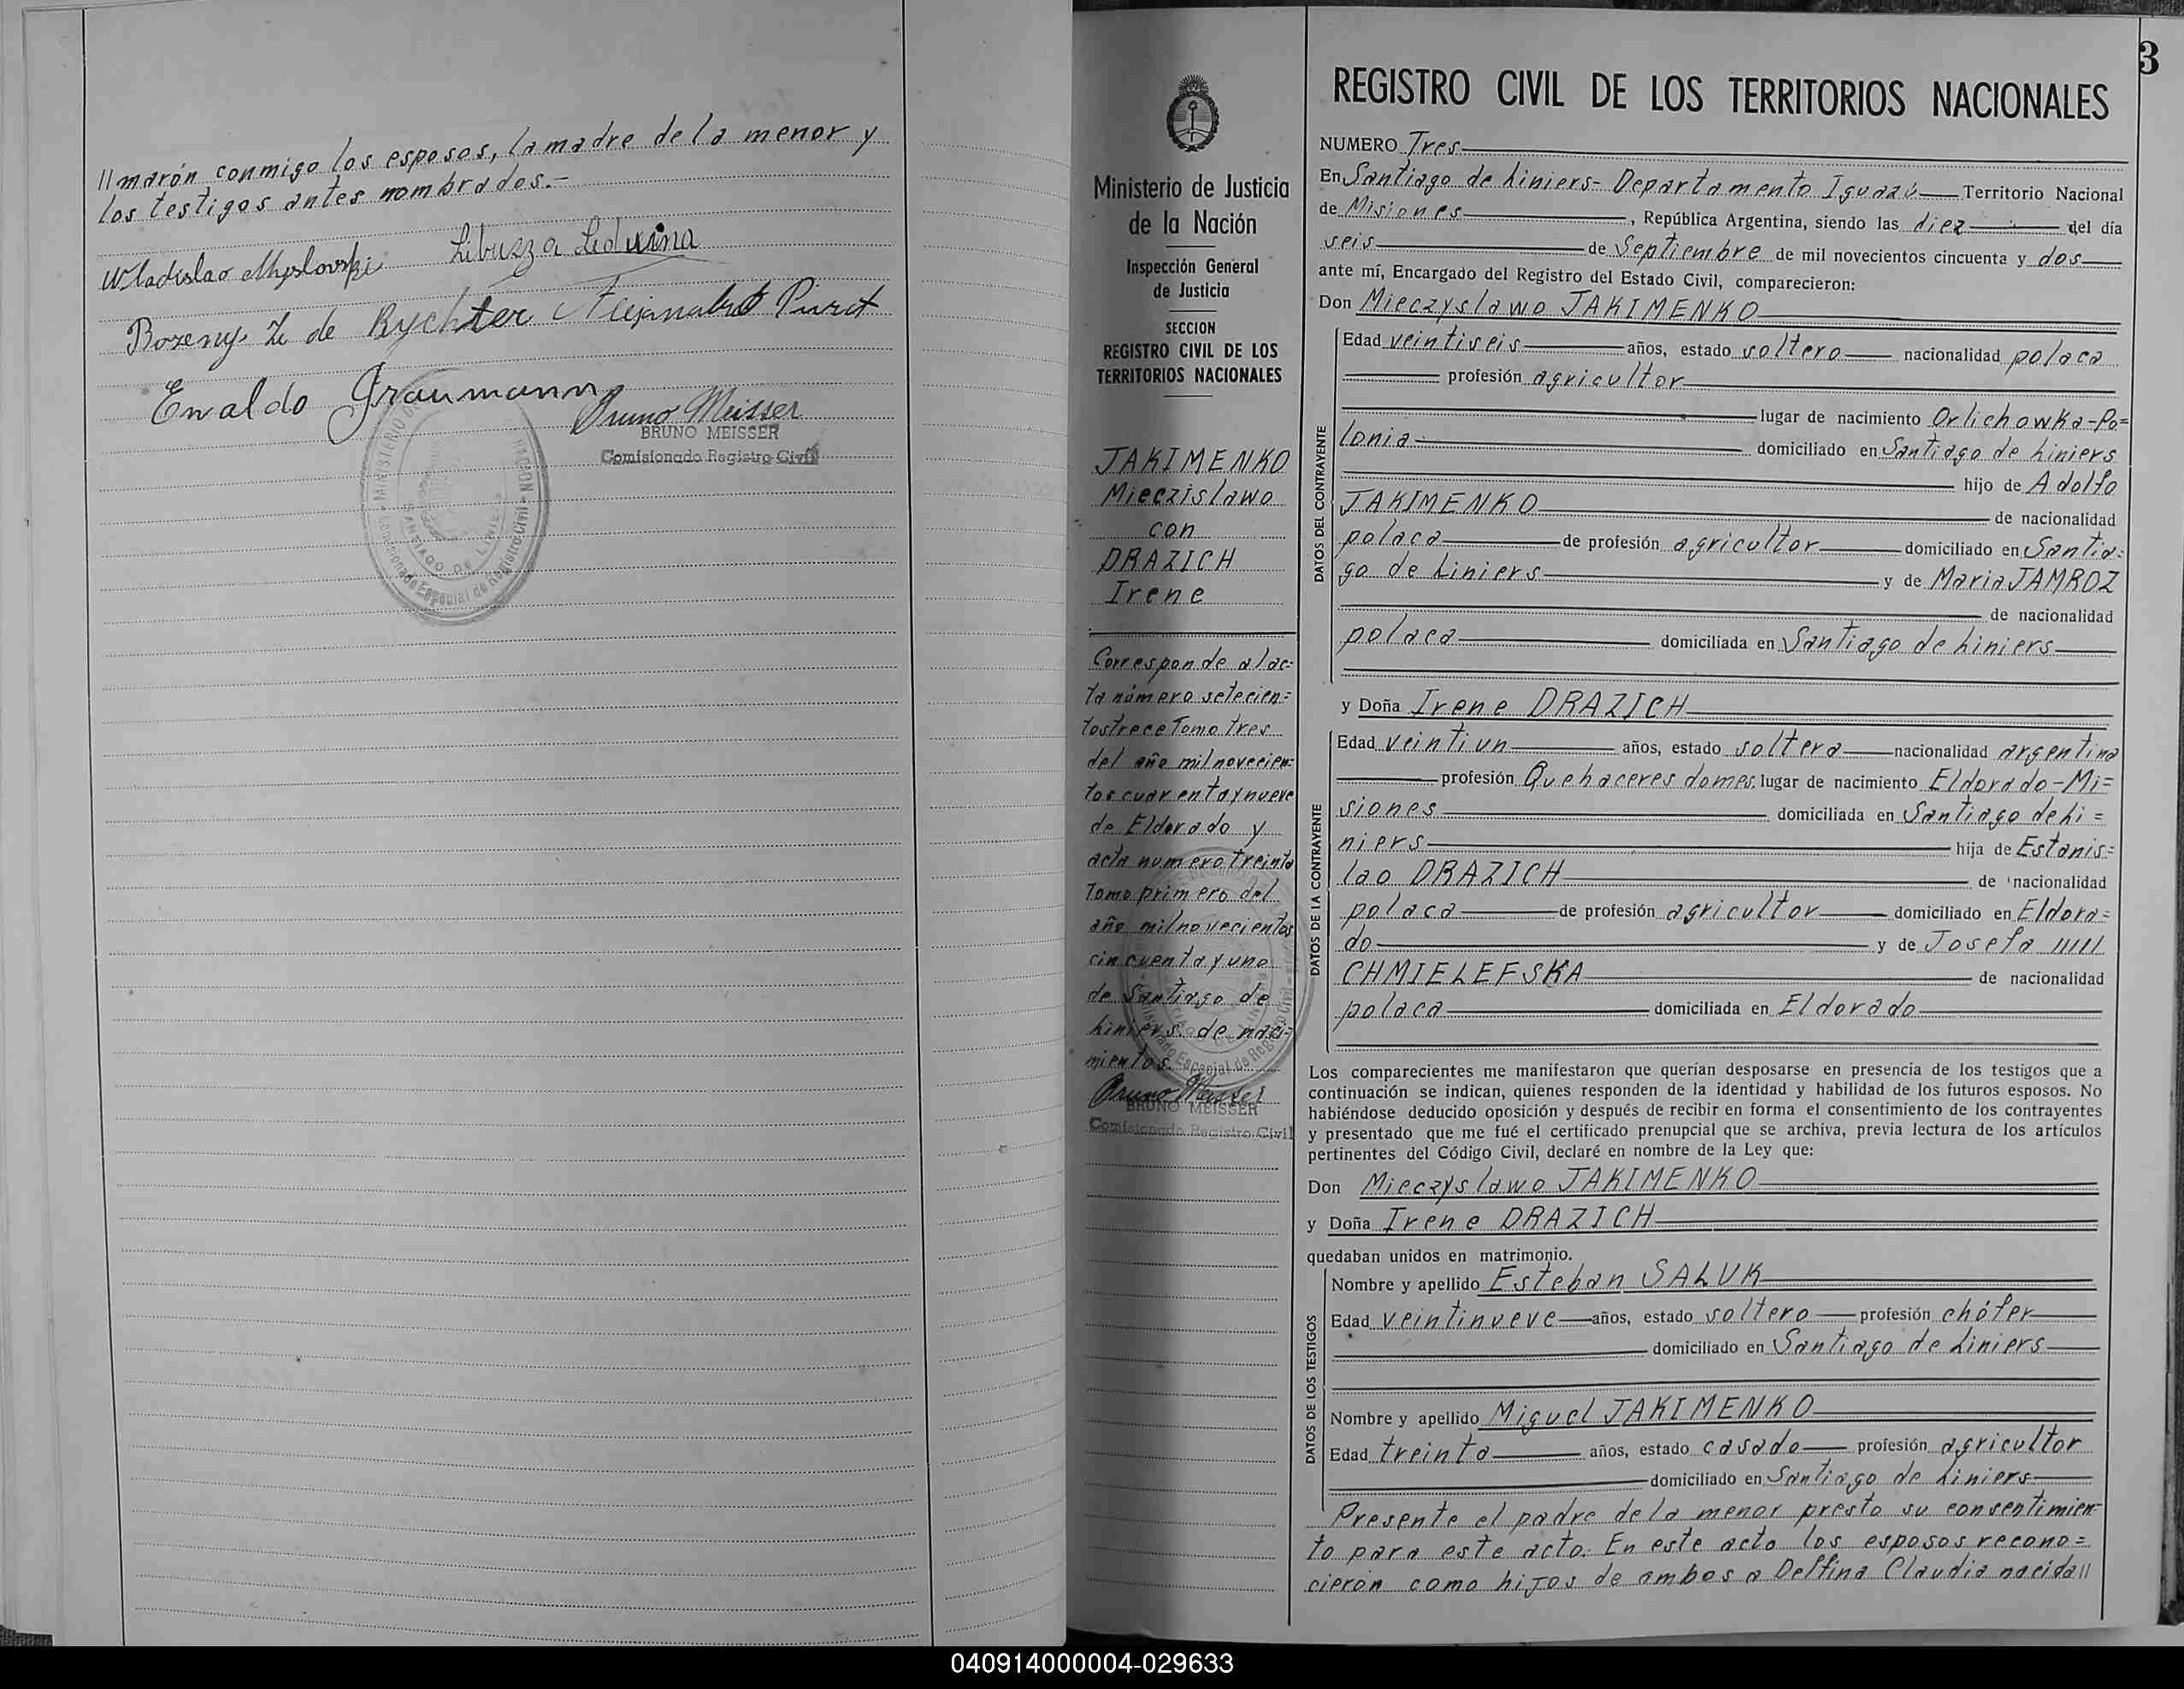 //marón conmigo los esposos, la madre de la menor y
los testigos antes nombrados.-
Wladislao Myslovski
Libusza Leduina
Bozeny Z. de Rychter
Enaldo Graumann
Bruno Meisser
BRUNO MEISSER
Comisionado Registro Civil
SANTIAGO DE LINIERS
3
Ministerio de Justicia
de la Nación
Inspección General
de Justicia
SECCION
REGISTRO CIVIL DE LOS
TERRITORIOS NACIONALES
JAKIMENKO
Mieczislawo
con
DRAZICH
Irene
Corresponde al ac=
ta número setecien=
tos trece Tomo tres
del año mil novecien=
tos cuarenta y nueve
de Eldorado y
acta numero treinta
Tomo primero del
año mil novecientos
cincuenta y uno
de Santiago de
Liniers de naci=
mientos.
Bruno Meisser
BRUNO MEISSER
Comisionado Registro Civil
REGISTRO CIVIL DE LOS TERRITORIOS NACIONALES
NUMERO Tres
En Santiago de Liniers- Departamento Iguazú Territorio Nacional
de Misiones, República Argentina, siendo las diez del día
seis de Septiembre de mil novecientos cincuenta y dos
ante mí, Encargado del Registro del Estado Civil, comparecieron:
Don Mieczyslawo JAKIMENKO
DATOS DEL CONTRAYENTE
Edad veintiseis años, estado soltero nacionalidad polaca
profesión agricultor
lugar de nacimiento Orlichowka-Po=
lonia domiciliado en Santiago de Liniers
hijo de Adolfo
JAKIMENKO de nacionalidad
polaca de profesión agricultor domiciliado en Santia=
go de Liniers y de Maria JAMROZ
de nacionalidad
polaca domiciliada en Santiago de Liniers
y Doña Irene DRAZICH
DATOS DE LA CONTRAYENTE
Edad veintiun años, estado soltera nacionalidad argentina
profesión Quehaceres domes. lugar de nacimiento Eldorado-Mi=
siones domiciliada en Santiago de Li=
niers hija de Estanis=
lao DRAZICH de nacionalidad
polaca de profesión agricultor domiciliado en Eldora=
do y de Josefa /////
CHMIELEFSKA de nacionalidad
polaca domiciliada en Eldorado
Los comparecientes me manifestaron que querían desposarse en presencia de los testigos que a
continuación se indican, quienes responden de la identidad y habilidad de los futuros esposos. No
habiéndose deducido oposición y después de recibir en forma el consentimiento de los contrayentes
y presentado que me fué el certificado prenupcial que se archiva, previa lectura de los artículos
pertinentes del Código Civil, declaré en nombre de la Ley que:
Don Mieczyslawo JAKIMENKO
y Doña Irene DRAZICH
quedaban unidos en matrimonio.
DATOS DE LOS TESTIGOS
Nombre y apellido Esteban SALUK
Edad veintinueve años, estado soltero profesión chófer
domiciliado en Santiago de Liniers
Nombre y apellido Miguel JAKIMENKO
Edad treinta años, estado casado profesión agricultor
domiciliado en Santiago de Liniers
Presente el padre de la menor presto su consentimien=
to para este acto. En este acto los esposos recono=
cierón como hijos de ambos a Delfina Claudia nacida//
040914000004-029633